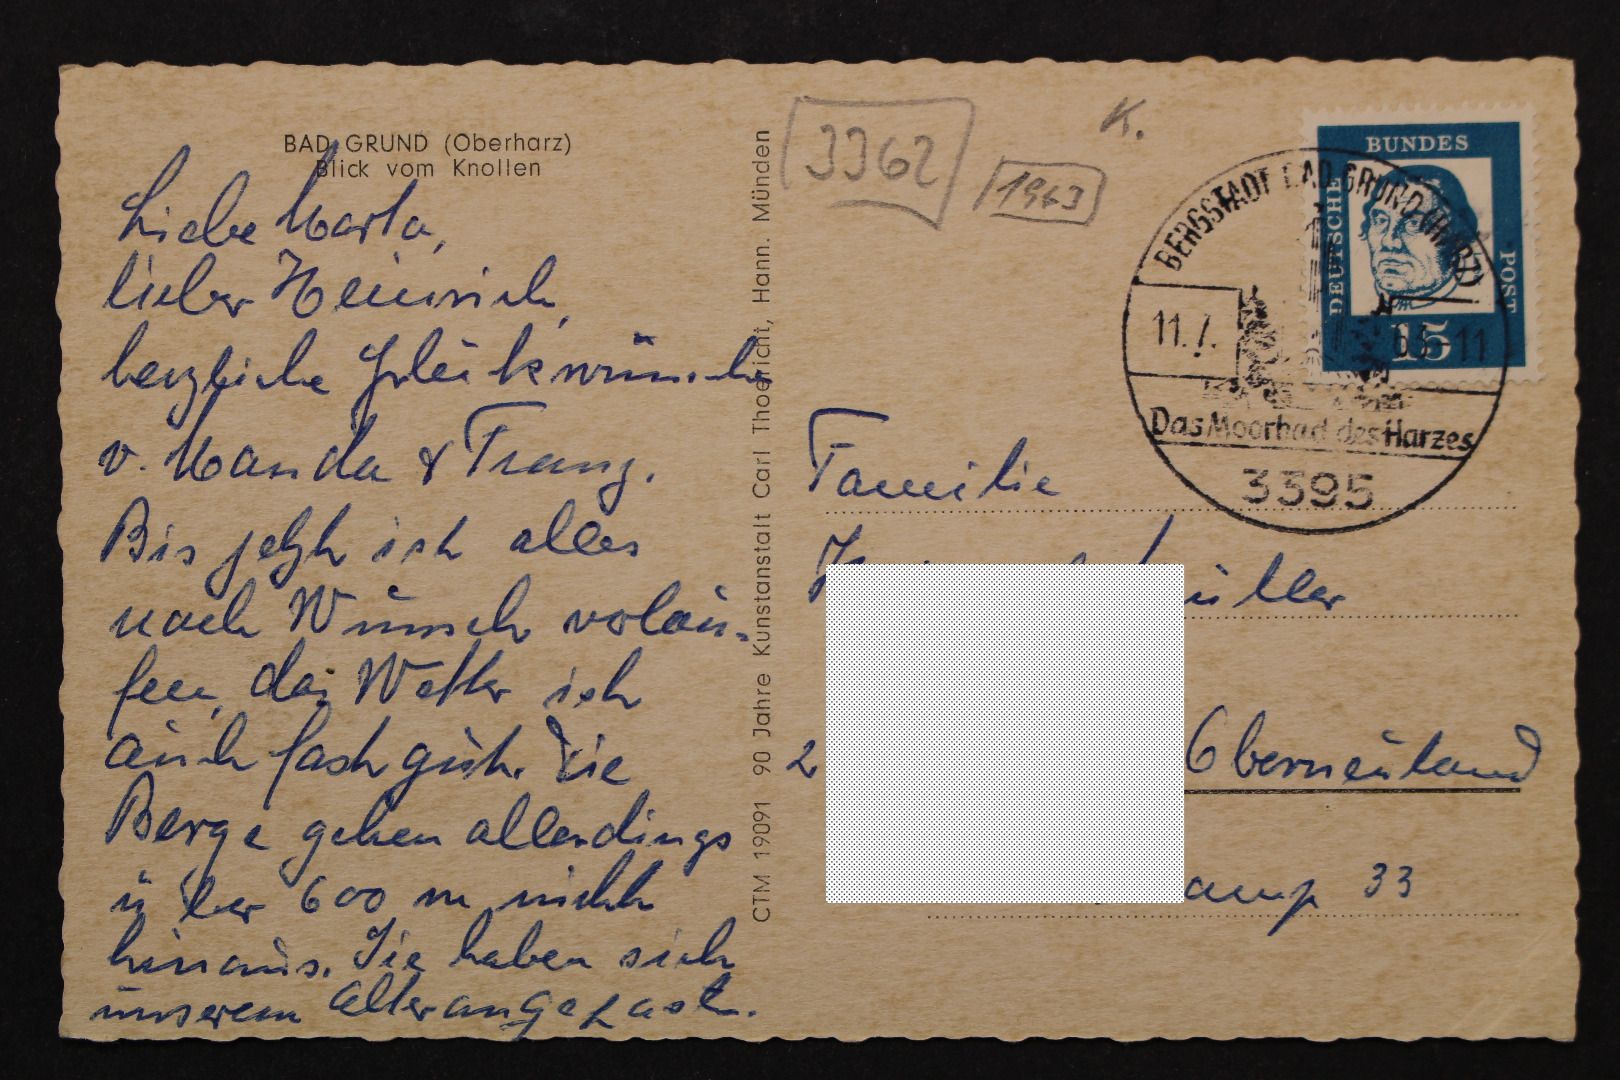 BAD GRUND (Oberharz)
Blick vom Knollen
Liebe Marta,
lieber Heinrich,
herzliche Glückwünsche
v. Wanda & Franz.
Bis jetzt ist alles
nach Wunsch verlau-
fen, das Wetter ist
auch fast gut. Die
Berge gehen allerdings
über 600 m nicht
hinaus. Sie haben sich
unserem Alter angepaßt.
CTM 19091 90 Jahre Kunstanstalt Carl Thoericht, Hann. Münden
3362
1963
K.
DEUTSCHE BUNDES POST
15
BERGSTADT BAD GRUND (HARZ)
11.7. 63 - 11
Das Moorbad des Harzes
3395
Familie
2 Oberneuland
kamp 33